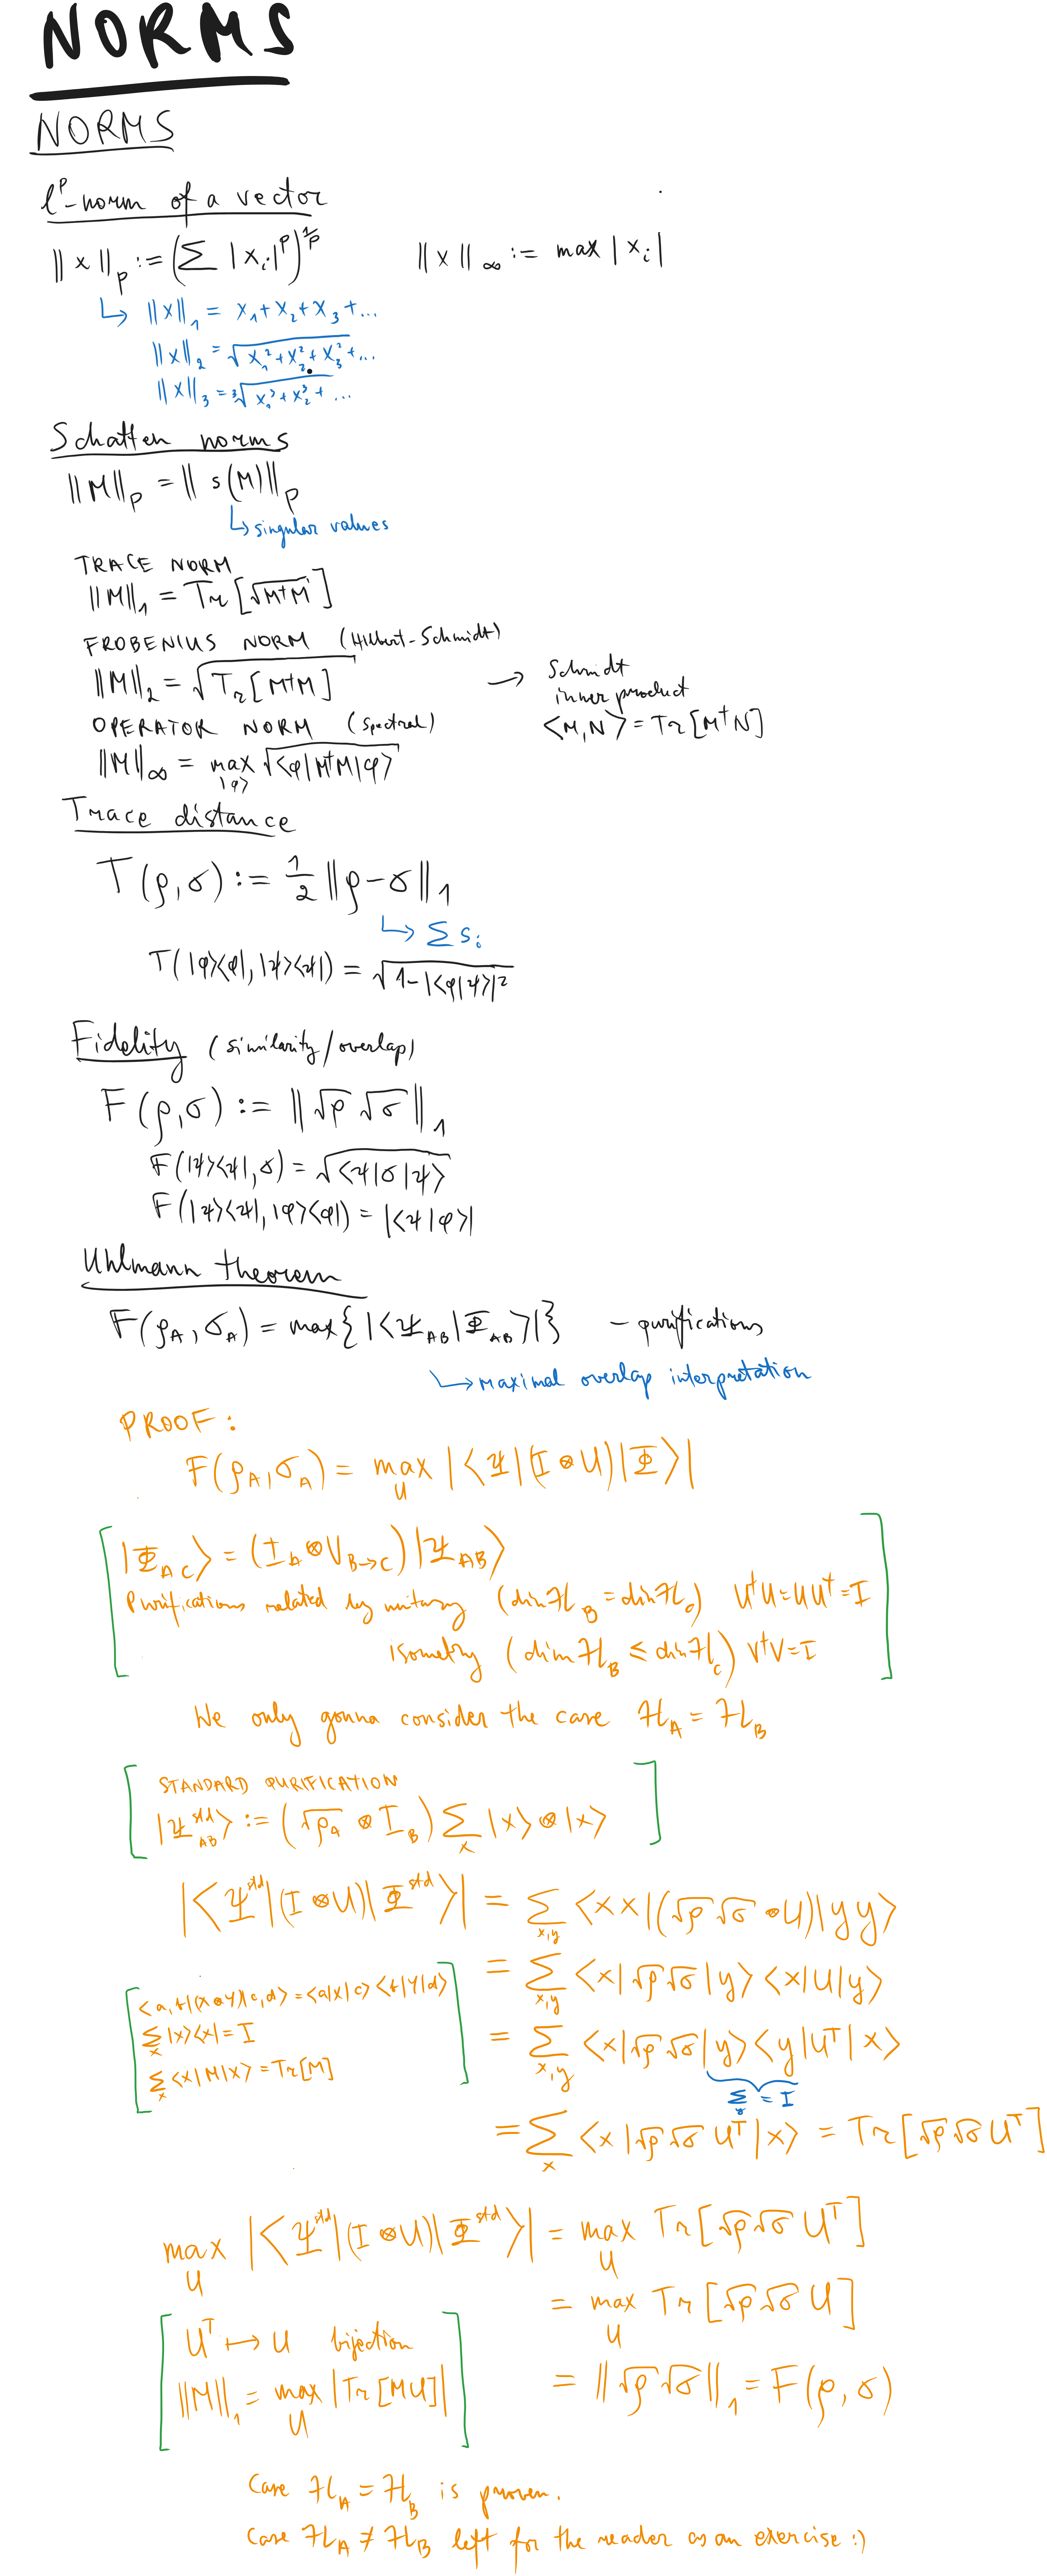 NORMS
NORMS
l^p-norm of a vector
‖x‖_p := (∑ |x_i|^p)^{1/p}    ‖x‖_∞ := max |x_i|
↳ ‖x‖_1 = x_1 + x_2 + x_3 + ...
‖x‖_2 = √(x_1^2 + x_2^2 + x_3^2 + ...
‖x‖_3 = ∛(x_1^3 + x_2^3 + ...
Schatten norms
‖M‖_p = ‖s(M)‖_p
↳ singular values
TRACE NORM
‖M‖_1 = Tr[√(M†M)]
FROBENIUS NORM (Hilbert-Schmidt)
‖M‖_2 = √(Tr[M†M])
→ Schmidt
inner product
⟨M,N⟩ = Tr[M†N]
OPERATOR NORM (spectral)
‖M‖_∞ = max_{|φ⟩} √(⟨φ|M†M|φ⟩)
Trace distance
T(ρ,σ) := 1/2 ‖ρ-σ‖_1
↳ ∑ s_i
T(|φ⟩⟨φ|, |ψ⟩⟨ψ|) = √(1-|⟨φ|ψ⟩|^2)
Fidelity (similarity/overlap)
F(ρ,σ) := ‖√ρ √σ‖_1
F(|ψ⟩⟨ψ|,σ) = √(⟨ψ|σ|ψ⟩)
F(|ψ⟩⟨ψ|, |φ⟩⟨φ|) = |⟨ψ|φ⟩|
Uhlmann theorem
F(ρ_A,σ_A) = max{|⟨Ψ_AB|Φ_AB⟩|} - purifications
↳ maximal overlap interpretation
PROOF:
F(ρ_A,σ_A) = max_U |⟨Ψ|(I⊗U)|Φ⟩|
|Φ_AC⟩ = (I_A⊗V_{B→C})|Ψ_AB⟩
Purifications related by unitary (dim H_B = dim H_C) U†U=UU†=I
isometry (dim H_B ≤ dim H_C) V†V=I
We only gonna consider the case H_A = H_B
STANDARD PURIFICATION
|Ψ^std_AB⟩ := (√ρ_A ⊗ I_B) ∑_x |x⟩⊗|x⟩
|⟨Ψ^std|(I⊗U)|Φ^std⟩| = ∑_{x,y} ⟨xx|(√ρ√σ⊗U)|yy⟩
= ∑_{x,y} ⟨x|√ρ√σ|y⟩⟨x|U|y⟩
⟨a,b|(X⊗Y)|c,d⟩=⟨a|X|c⟩⟨b|Y|d⟩
∑_x |x⟩⟨x| = I
∑_x ⟨x|M|x⟩ = Tr[M]
= ∑_{x,y} ⟨x|√ρ√σ|y⟩⟨y|U^T|x⟩
∑_y = I
= ∑_x ⟨x|√ρ√σ U^T|x⟩ = Tr[√ρ√σ U^T]
max_U |⟨Ψ^std|(I⊗U)|Φ^std⟩| = max_U Tr[√ρ√σ U^T]
= max_U Tr[√ρ√σ U]
U^T ↦ U bijection
‖M‖_1 = max_U |Tr[MU]|
= ‖√ρ√σ‖_1 = F(ρ,σ)
Case H_A = H_B is proven.
Case H_A ≠ H_B left for the reader as an exercise :)